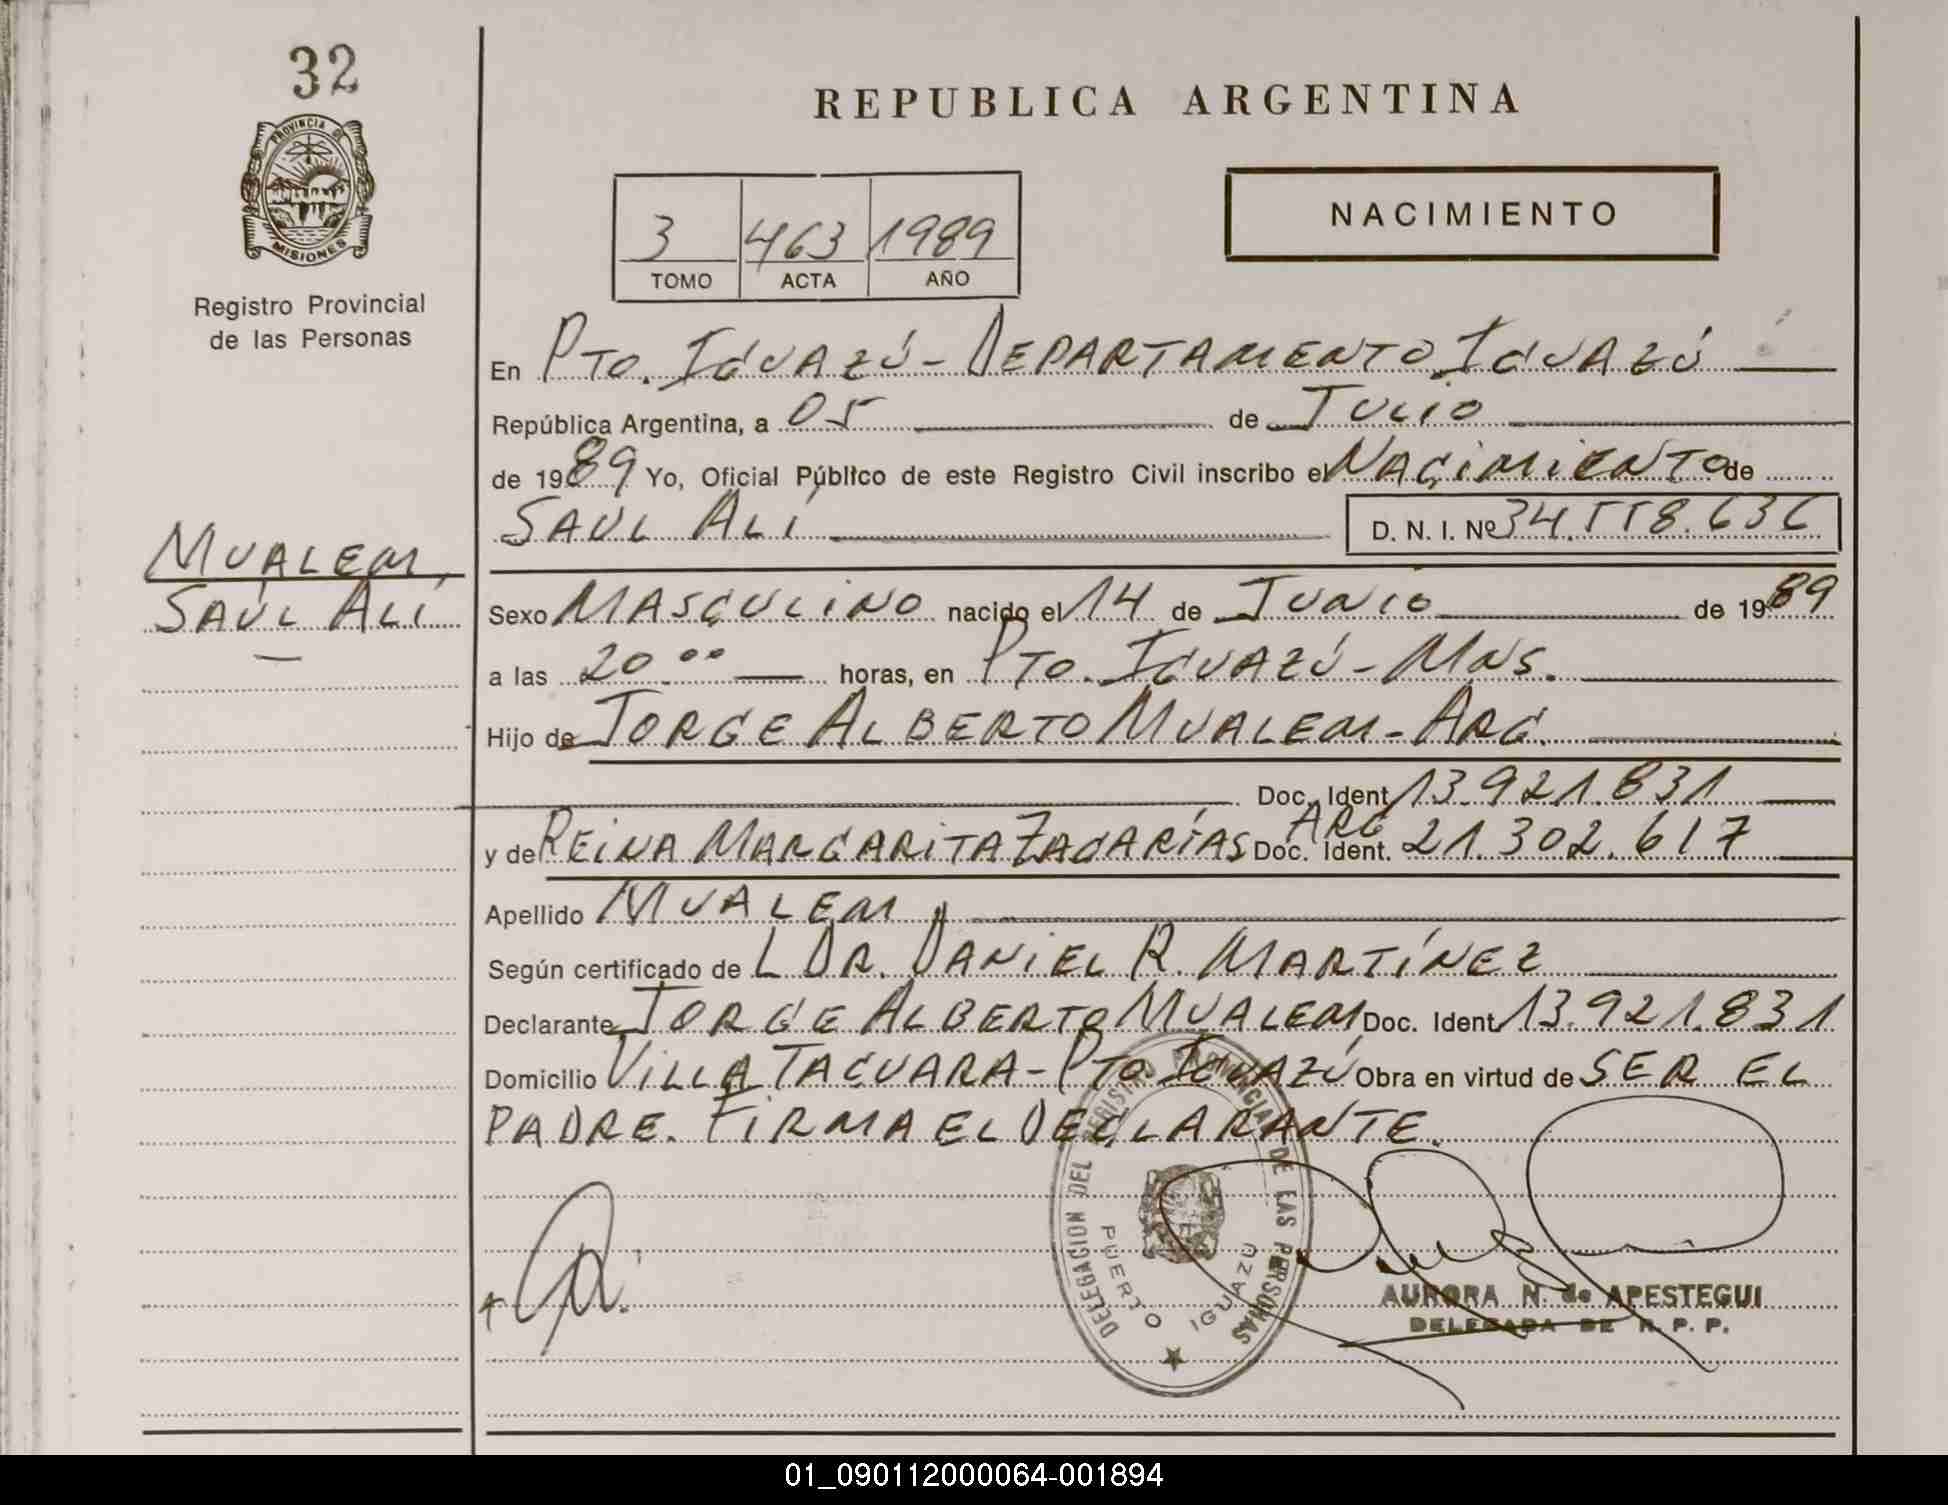 32
PROVINCIA DE
MISIONES
Registro Provincial
de las Personas
REPUBLICA ARGENTINA
3 463 1989
TOMO ACTA AÑO
NACIMIENTO
En PTO. IGUAZÚ - DEPARTAMENTO IGUAZÚ
República Argentina, a 05 de JULIO
de 1989 Yo, Oficial Público de este Registro Civil inscribo el NACIMIENTO de
SAUL ALÍ D. N. I. Nº 34.558.636
MUALEM,
SAÚL ALÍ
Sexo MASCULINO nacido el 14 de JUNIO de 1989
a las 20 00 horas, en PTO. IGUAZÚ - MNS.
Hijo de JORGE ALBERTO MUALEM - ARG.
Doc. Ident. 13.921.831
y de REINA MARGARITA ZACARÍAS ARG Doc. Ident. 21.302.617
Apellido MUALEM
Según certificado de L DR. DANIEL R. MARTÍNEZ
Declarante JORGE ALBERTO MUALEM Doc. Ident. 13.921.831
Domicilio VILLA TACUARA - PTO. IGUAZÚ Obra en virtud de SER EL
PADRE. FIRMA EL DECLARANTE.
DELEGACION DEL REGISTRO PROVINCIAL DE LAS PERSONAS
PUERTO IGUAZU
AURORA N. de APESTEGUI
DELEGADA DE R. P. P.
01_090112000064-001894